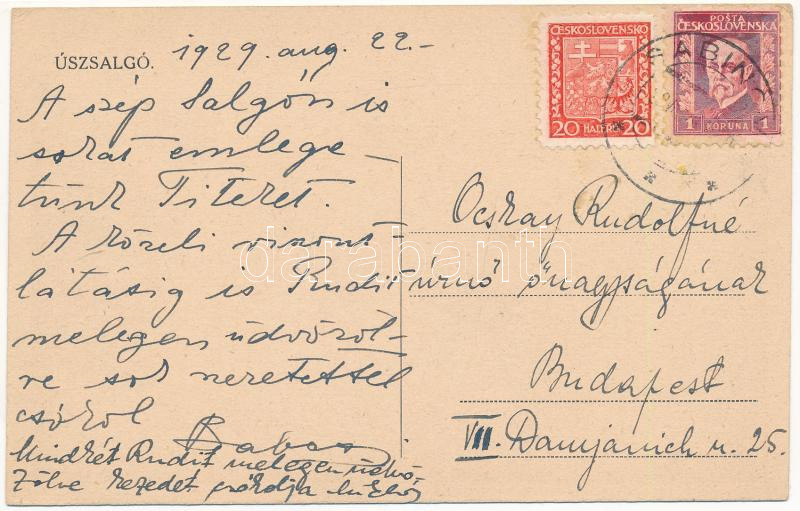 ÚSZSALGÓ.
1929. aug. 22.-
A szép Salgón is
sokat emlege-
tünk Titeket.
A közeli viszont-
látásig is Rudit
melegen üdvözöl-
ve sok szeretettel
csókol
Mindkét Rudit melegen üdvö-
zölve kezedet csókolja
ČESKOSLOVENSKO
20 HALÉŘŮ 20
POŠTA
ČESKOSLOVENSKÁ
1 KORUNA 1
SABIN
Ocskay Rudolfné
úrnő őnagyságának
Budapest
VII. Damjanich u. 25.
darabanth